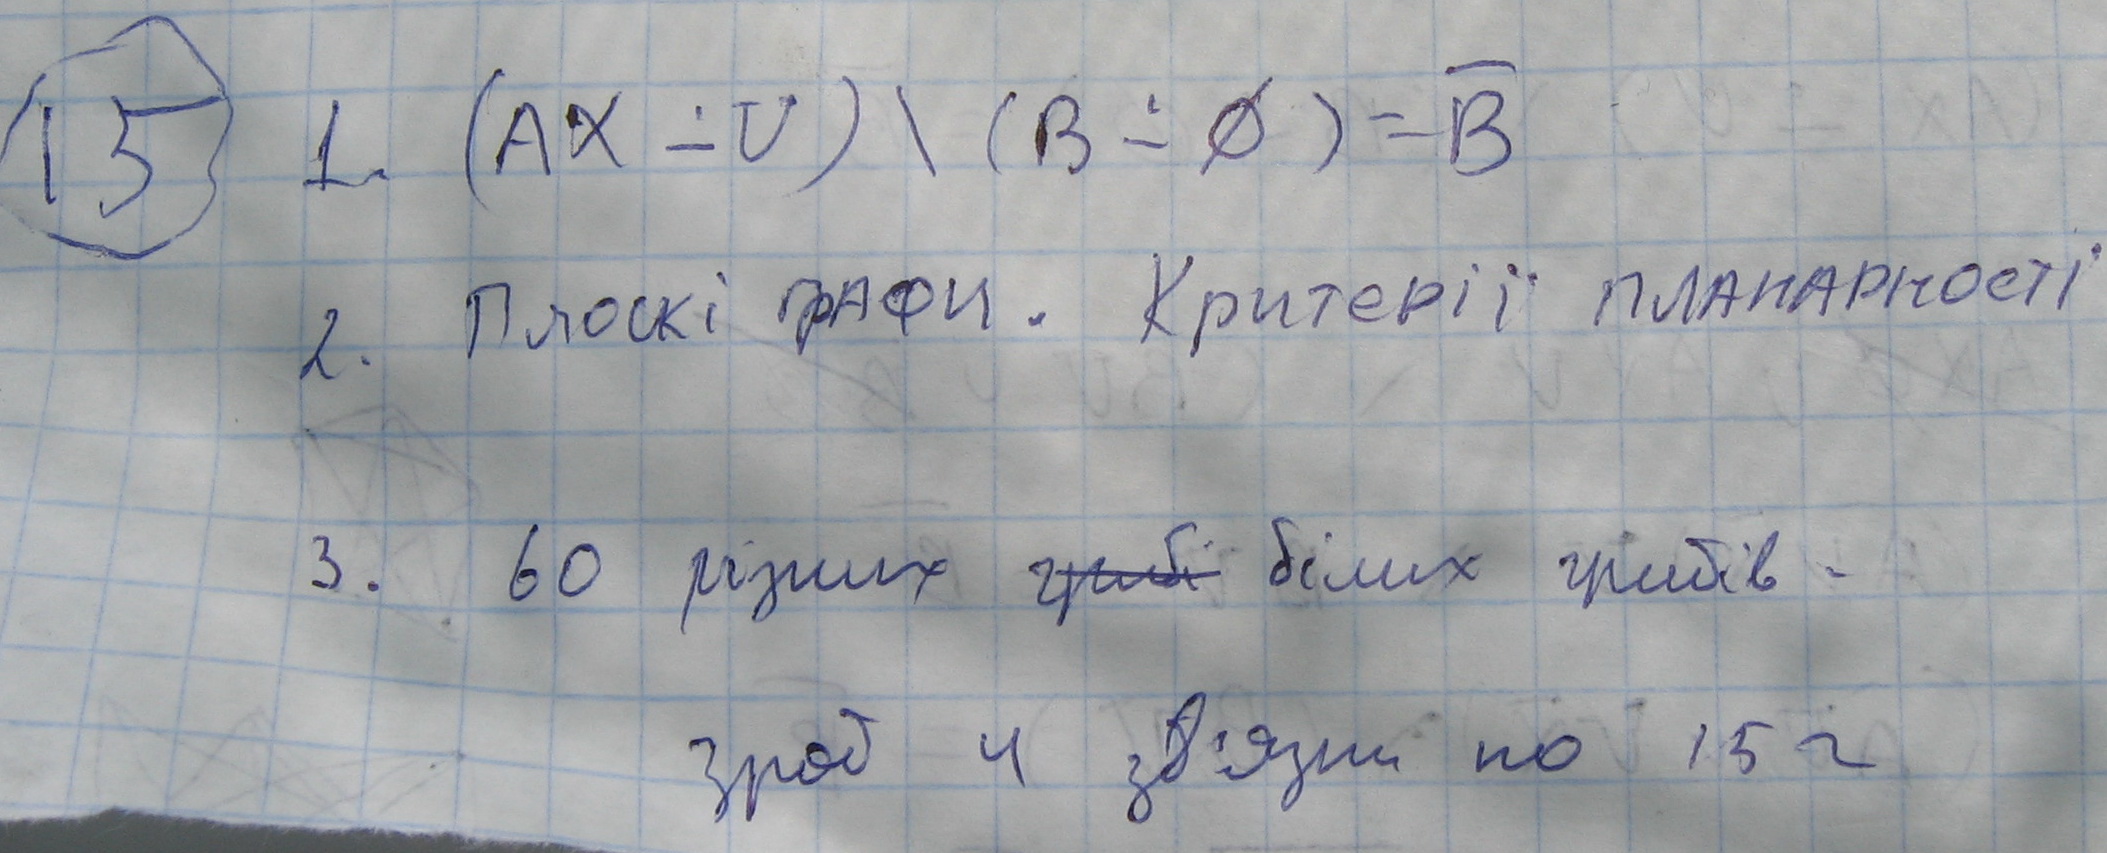 15 1. (AX ∸ U) \ (B ∸ Ø) = B̅
2. Плоскі графи. Критерії планарності
3. 60 різних грибі білих грибів -
зроб 4 зв'язки по 15 г